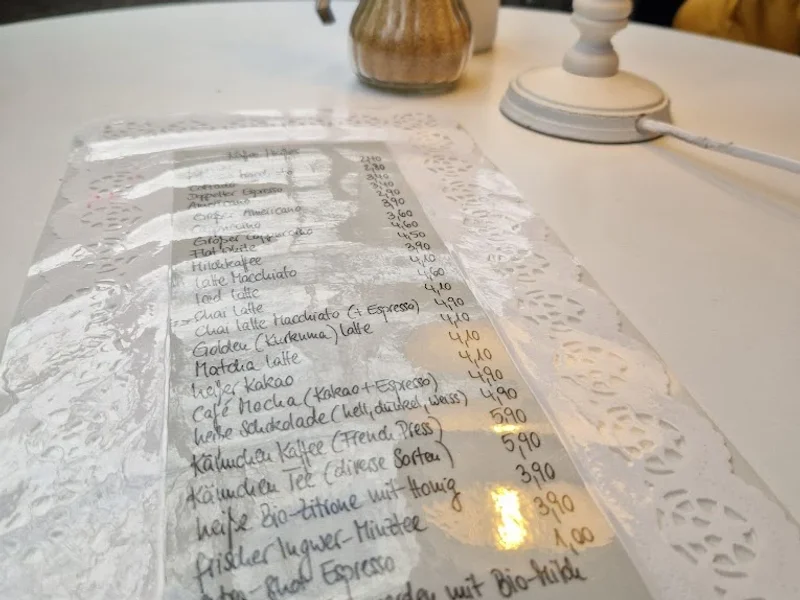 2,80
Cortado 3,40
Doppelter Espresso 3,40
Americano 2,90
Großer Americano 3,90
Cappuccino 3,60
Großer Cappuccino 4,60
Flat White 4,50
Milchkaffee 3,90
Latte Macchiato 4,10
Iced Latte 4,60
Chai Latte 4,10
Chai Latte Macchiato (+ Espresso) 4,90
Golden (Kurkuma) Latte 4,10
Matcha Latte 4,10
heißer Kakao 4,10
Café Mocha (Kakao + Espresso) 4,90
heiße Schokolade (hell, dunkel, weiss) 4,90
Kännchen Kaffee (French Press) 5,90
Kännchen Tee (diverse Sorten) 5,90
heiße Bio-Zitrone mit Honig 3,90
frischer Ingwer-Minztee 3,90
Extra-Shot Espresso 1,00
mit Bio-Milch